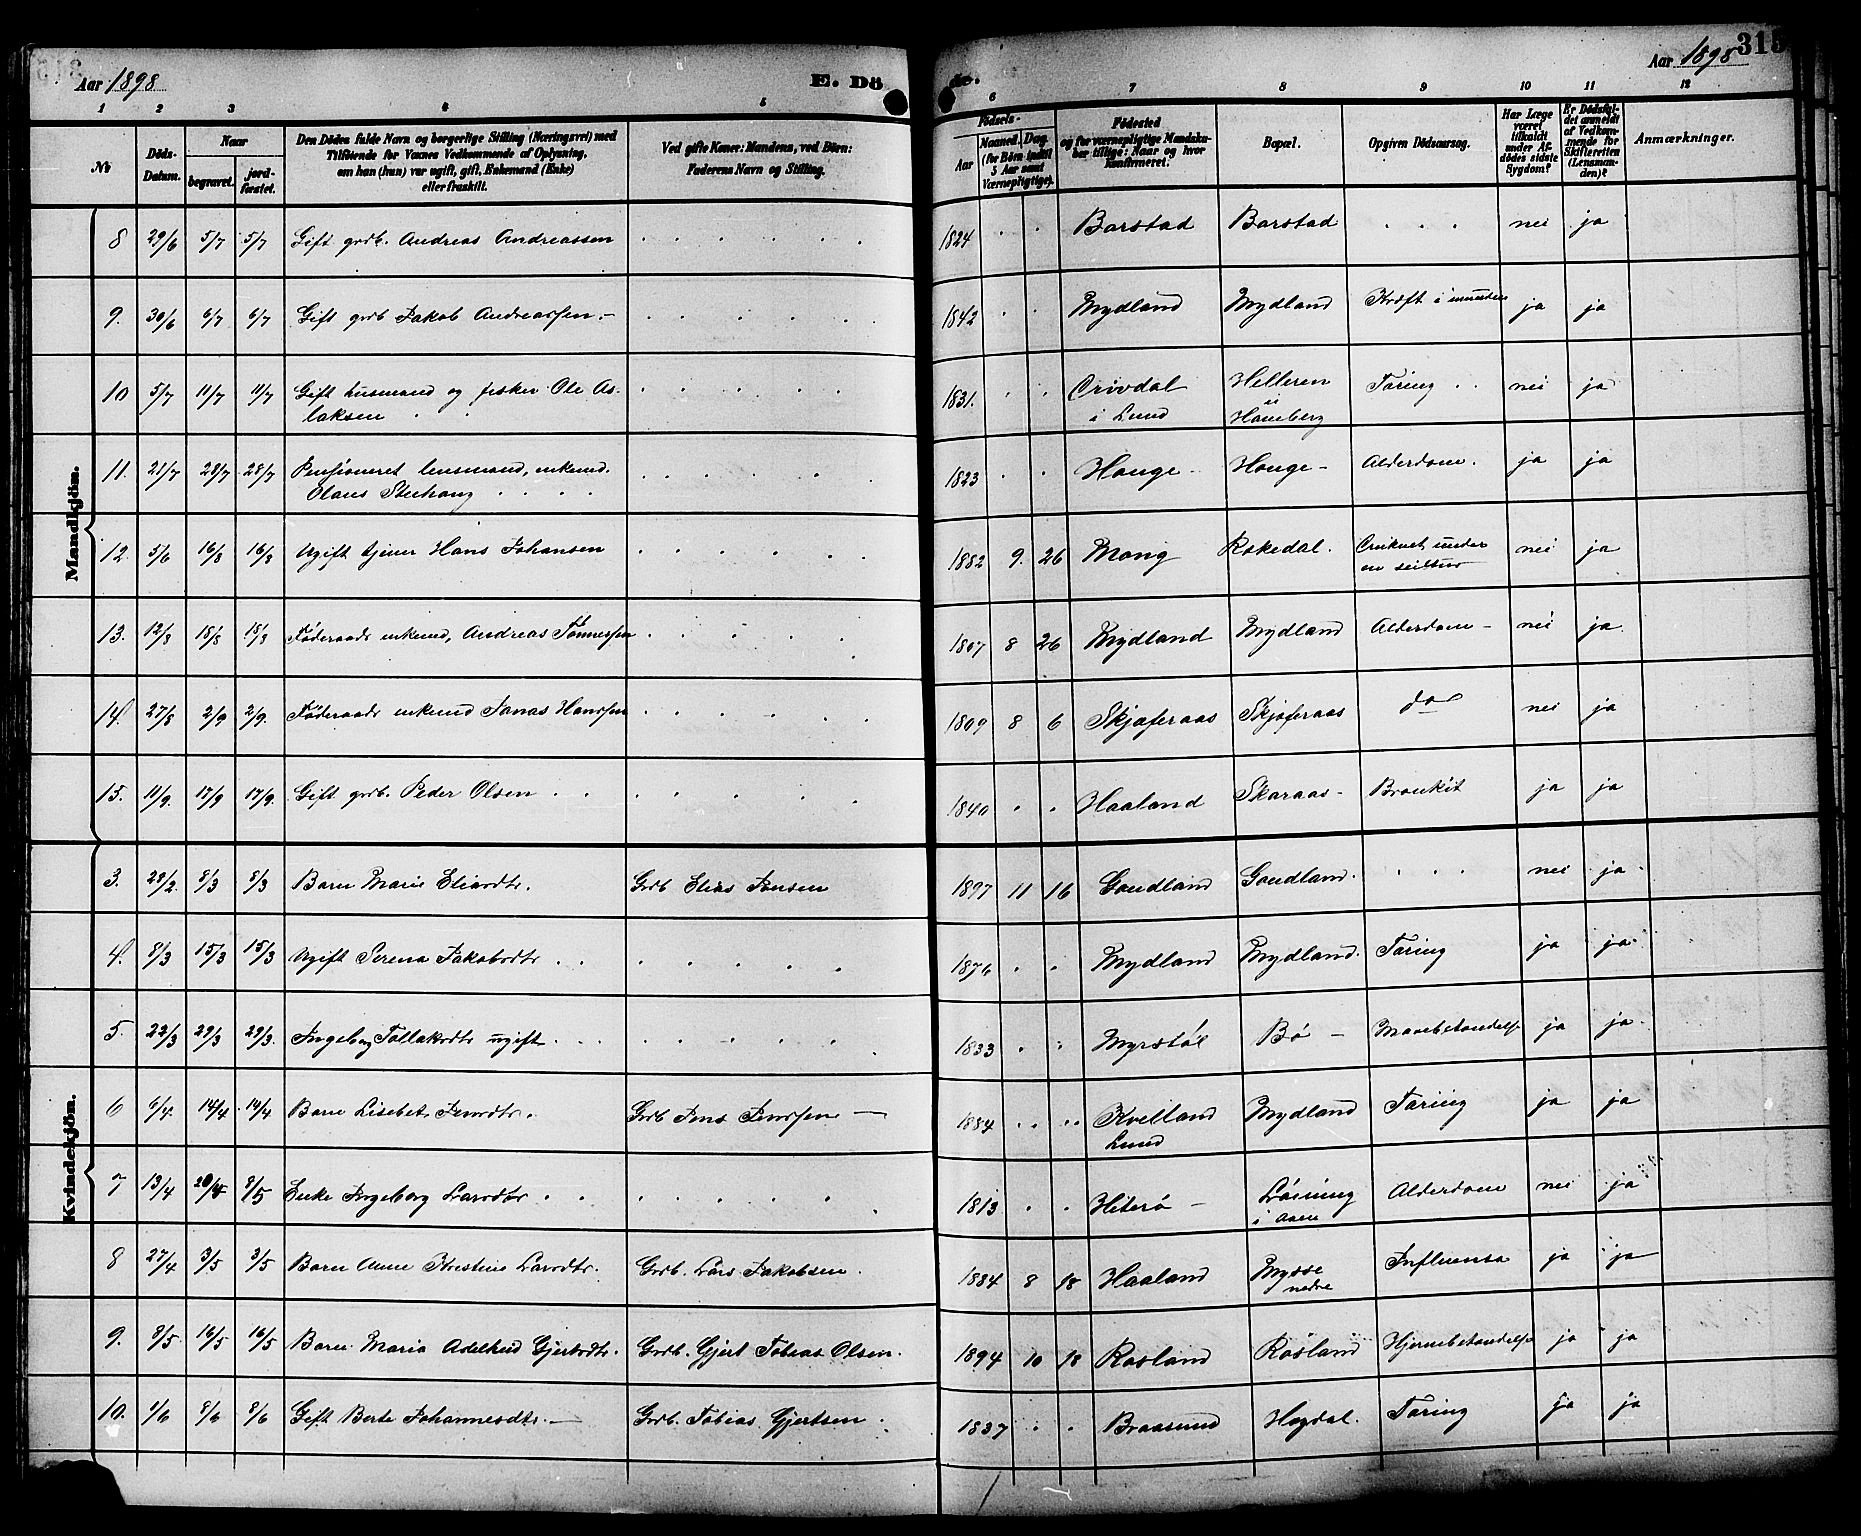 315
Aar 1898
E. Dö
de.
Aar 1898
1 2 3 4 5 6 7 8 9 10 11 12
№
Döds-Datum.
Naar
begravet.
jord-fæstet.
Den Dödes fulde Navn og borgerlige Stilling (Næringsvei) med
Tilföiende for Voxnes Vedkommende af Oplysning,
om han (hun) var ugift, gift, Enkemand (Enke)
eller fraskilt.
Ved gifte Koner: Mandens, ved Börn:
Faderens Navn og Stilling.
Födsels-
Aar
Maaned. Dag.
(for Börn indtil
5 Aar samt
Værnepligtige).
Födested
og for værnepligtige Mandska-
ber tillige: Naar og hvor
konfirmeret.
Bopæl.
Opgiven Dödsaarsag.
Har Læge
været
tilkaldt
under Af-
dödes sidste
Sygdom?
Er Dödsfal-
det anmeldt
af Vedkom-
mende for
Skifteretten
(Lensman-
den)?
Anmærkninger.
Mandkjön.
8 29/6 5/7 5/7 Gift grdb. Andreas Andreassen 1824 Barstad Barstad nei ja
9. 30/6 6/7 6/7 Gift grdb Jakob Andreassen.- 1842 Mydland Mydland Kræft i munden ja ja
10 5/7 11/7 11/7 Gift husmand og fisker Ole As- 1831. i Lund Helleren Tæring nei ja
laksen
11. 21/7 28/7 28/7 Pensioneret lensmand, enkemd. 1823 Hauge - Hauge - Alderdom. ja ja
Olaus
12. 5/6 16/8 16/8 Ugift tjener Hans Johansen 1882 9. 26 Mong Rekedal. nei ja
13. 12/8 18/8 18/8 Föderaads enkemd, Andreas Tönnessen 1807 8 26 Mydland Mydland Alderdom - nei ja.
14. 27/8 2/9 2/9. Föderaads enkemd Jonas Hanssen 1809 8 6 Skjoferaas Skjoferaas do nei ja
15. 11/9. 17/9 17/9. Gift grdb. Peder Olsen 1840 Haaland Skaraas - Bronkit ja ja
Kvindekjön.
3. 28/2. 8/3 8/3 Barn Marie Eliasdtr. Grdb Elias Jensen 1897 11 16 Goudland Goudland. nei ja
4. 8/3 15/3 15/3 Ugift Serena Jakobsdtr 1876 Mydland Mydland. Tæring ja ja
5. 22/3 29/3 29/3. Ingeborg Tollaksdtr ugift 1833 Myrstöl Bö - Mavebetændelse ja ja
6 6/4. 14/4 14/4 Barn Lisebet Jensdtr. Grdb Jens Jenssen - 1884 Kvelland Mydland Tæring ja ja
Lund
7 13/4 20/4 8/5 Enke Ingeborg Larsdtr 1813 Hiterö - Löining Alderdom nei ja
i Aaen
8 27/4 3/5 3/5 Barn Anne Kristine Larsdtr. Grdb. Lars Jakobsen. 1884 8 18 Haaland Mysse Influensa ja ja
nedre
9. 8/5 16/5 16/5 Barn Maria Adelheid Gjertsdtr. Grdb. Gjert Tobias Olsen. 1894 10 18 Rosland Rosland Hjernebetændelse ja ja
10. 1/6 8/6 8/6 Gift Berte Johannesdtr. - Grdb. Tobias Gjertsen 1837 Braasund Hogdal. Tæring ja ja